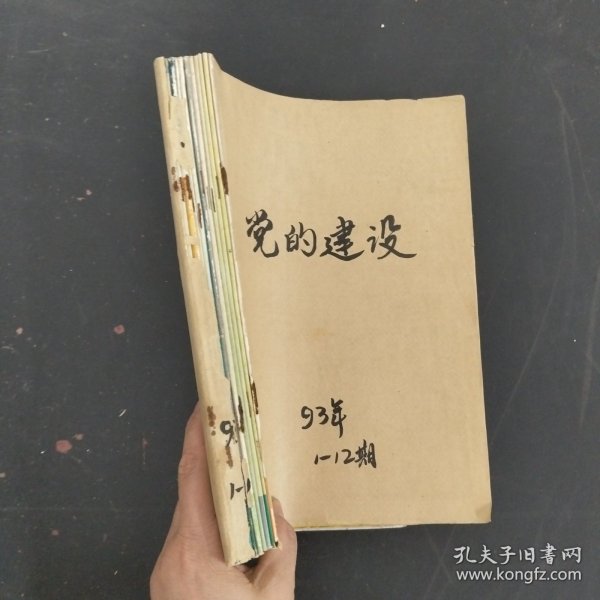 党的建设
93年
1-12期
9
1-1
孔夫子旧书网
www.kongfz.com